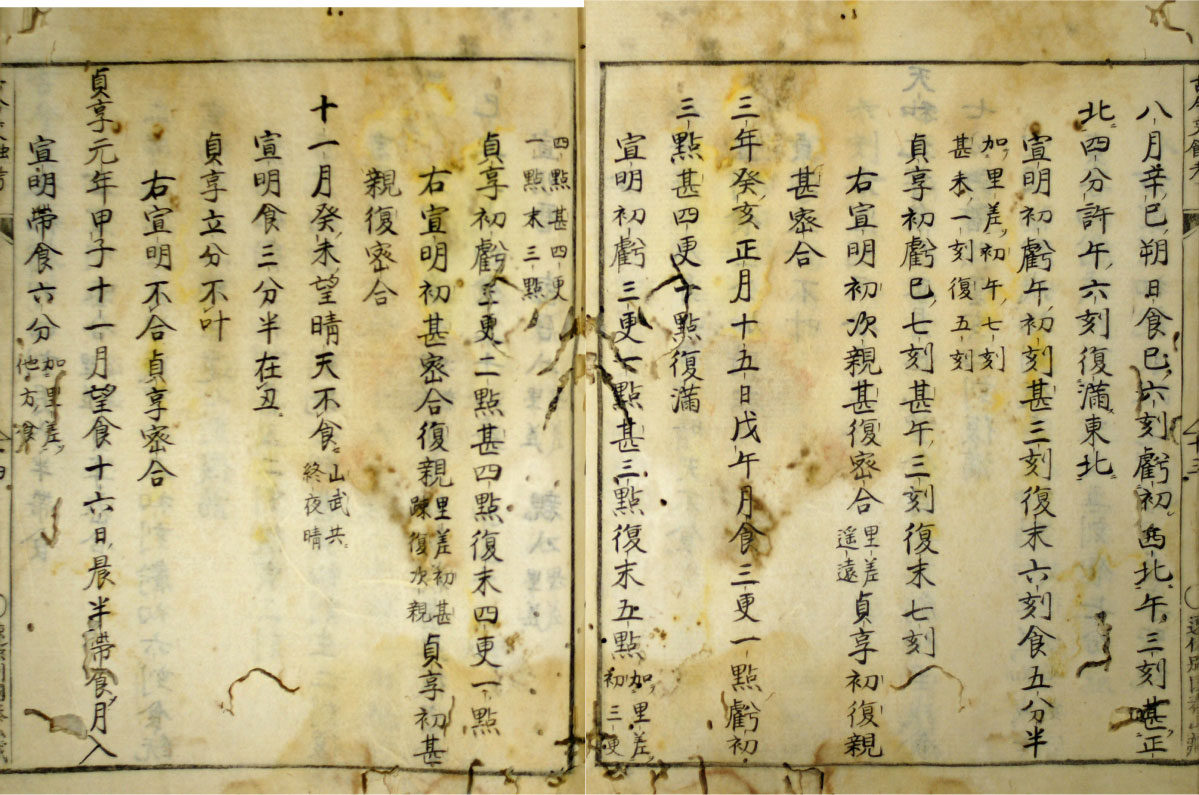 八月辛巳朔日食巳六刻虧初西北午三刻甚正
北四分許午六刻復滿東北
宣明初虧午初刻甚三刻復末六刻食五分半
加里差初午七刻
甚未一刻復五刻
貞享初虧巳七刻甚午三刻復末七刻
右宣明初次親甚復密合
里差
遥遠
貞享初復親
甚密合
三年癸亥正月十五日戊午月食三更一點虧初
三點甚四更十點復滿
宣明初虧三更七點甚三點復末五點
加里差
初三更
四點甚四更
一點末三點
貞享初虧三更二點甚四點復末四更一點
右宣明初甚密合復親
里差初甚
疎復次親
貞享初甚
親復密合
十一月癸未望晴天不食
山武共
終夜晴
宣明食三分半在丑
貞享立分不叶
右宣明不合貞享密合
貞享元年甲子十一月望食十六日晨半帶食月入
宣明帶食六分
加里差
他方食